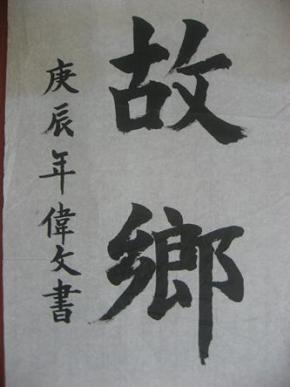 故鄉
庚辰年偉文書